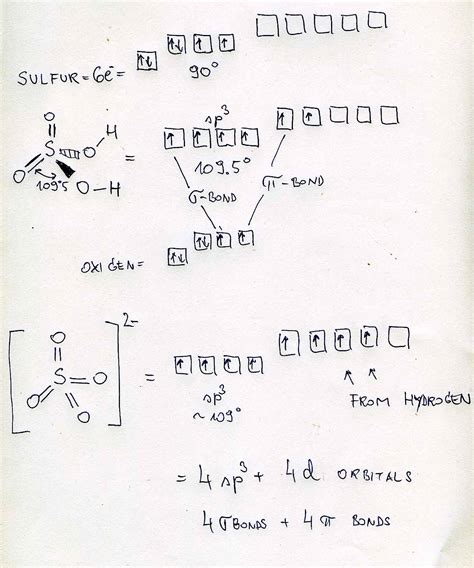 SULFUR = 6ē =
90°
sp³
109.5°
O
H
S
O
=
O
109°5
O-H
σ-BOND
π-BOND
OXIGEN =
2-
O
S
O
=
O
O
sp³
~109°
FROM HYDROGEN
= 4 sp³ + 4d ORBITALS
4 σ BONDS + 4 π BONDS